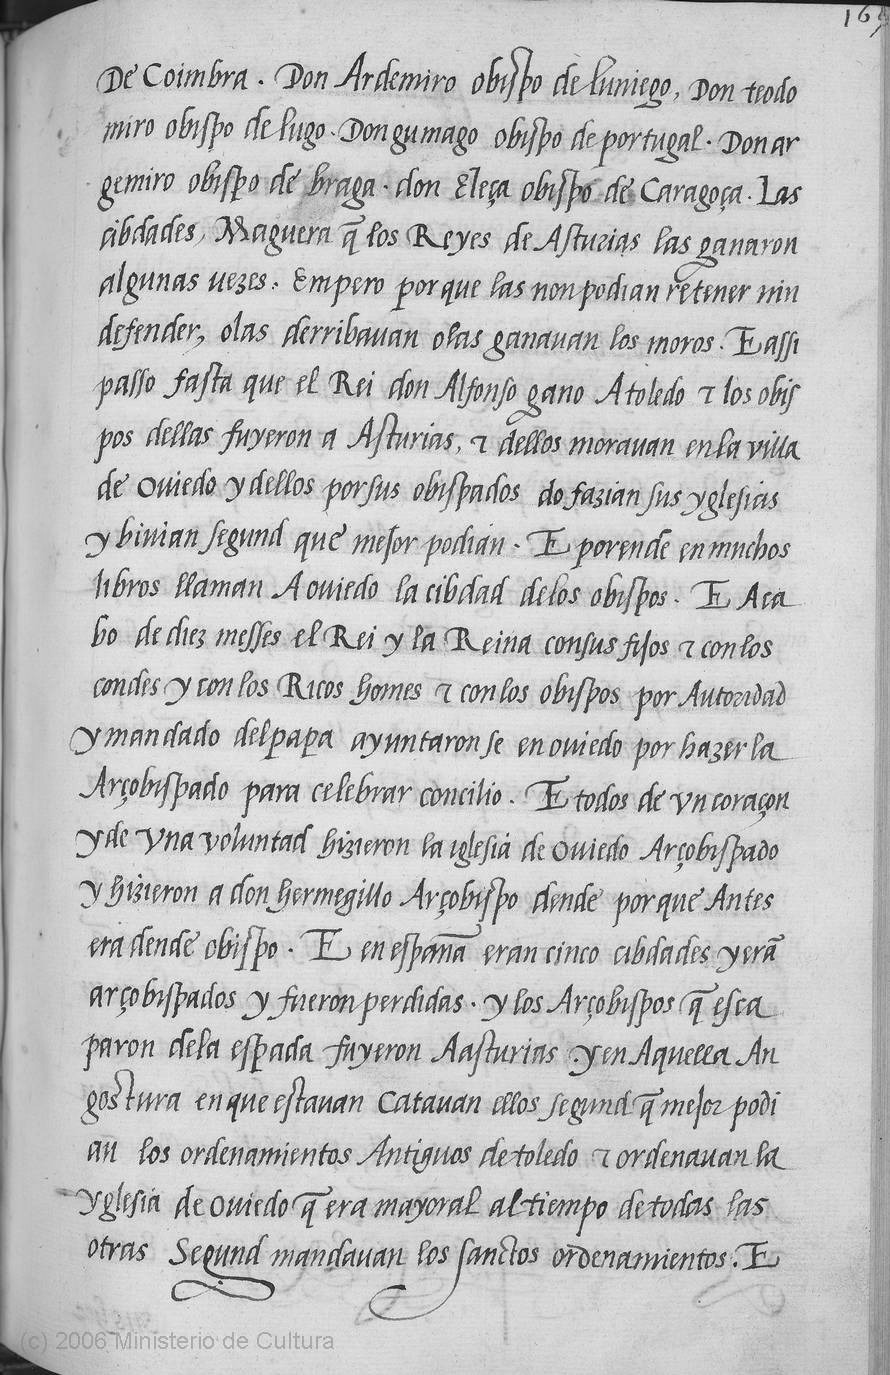 De Coimbra . Don Ardemiro obispo de luniego, Don teodo
miro obispo de lugo . Don gumago obispo de portugal . Don ar
gemiro obispo de braga . don Eleça obispo de Caragoça . Las
cibdades, Maguera q̃ los Reyes de Asturias las ganaron
algunas vezes . Empero por que las non podian retener nin
defender, o las derribavan o las ganavan los moros . E assi
passo fasta que el Rei don Alfonso gano A toledo ⁊ los obis
pos dellas fuyeron a Asturias, ⁊ dellos moravan en la villa
de Oviedo y dellos por sus obispados do fazian sus yglesias
y bivian segund que mejor podian . E por ende en muchos
libros llaman A oviedo la cibdad de los obispos . E A ca
bo de diez messes el Rei y la Reina con sus fijos ⁊ con los
condes y con los Ricos homes ⁊ con los obispos por Autoridad
y mandado del papa ayuntaron se en oviedo por hazer la
Arçobispado para celebrar concilio . E todos de vn coraçon
y de vna voluntad hizieron la iglesia de Oviedo Arçobispado
y hizieron a don hermegillo Arçobispo dende por que Antes
era dende obispo . E en españa eran cinco cibdades y erã
arçobispados y fueron perdidas . y los Arçobispos q̃ esca
paron de la espada fuyeron A asturias . y en Aquella An
gostura en que estavan Catavan ellos segund q̃ mejor podi
an los ordenamientos Antiguos de toledo ⁊ ordenavan la
yglesia de Oviedo q̃ era mayoral al tiempo de todas las
otras Segund mandavan los sanctos ordenamientos . E
(c) 2006 Ministerio de Cultura